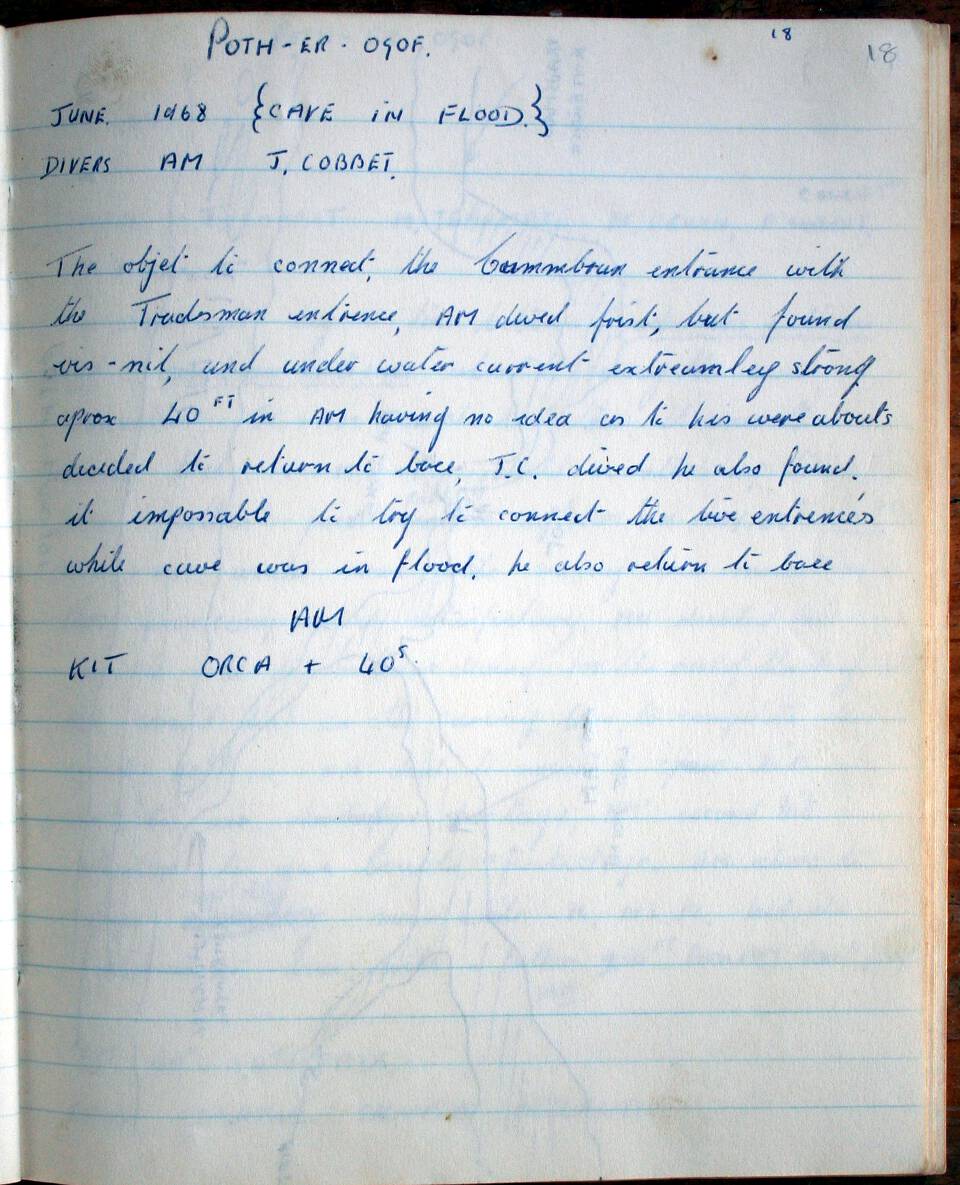 POTH-ER-OGOF. 18 18
JUNE. 1968 {CAVE IN FLOOD.}
DIVERS AM J. COBBET.
The objet to connect, the entrance with
the Tradesman entrence, AM dived frist, but found
vis-nil, and under water current extreamley strong
aprox 40 FT in AM having no idea as to his were abouts
decided to return to bace, J.C. dived he also found.
it impossable to try to connect the two entrences
while cave was in flood. he also return to bace
AM
KIT ORCA + 40s.